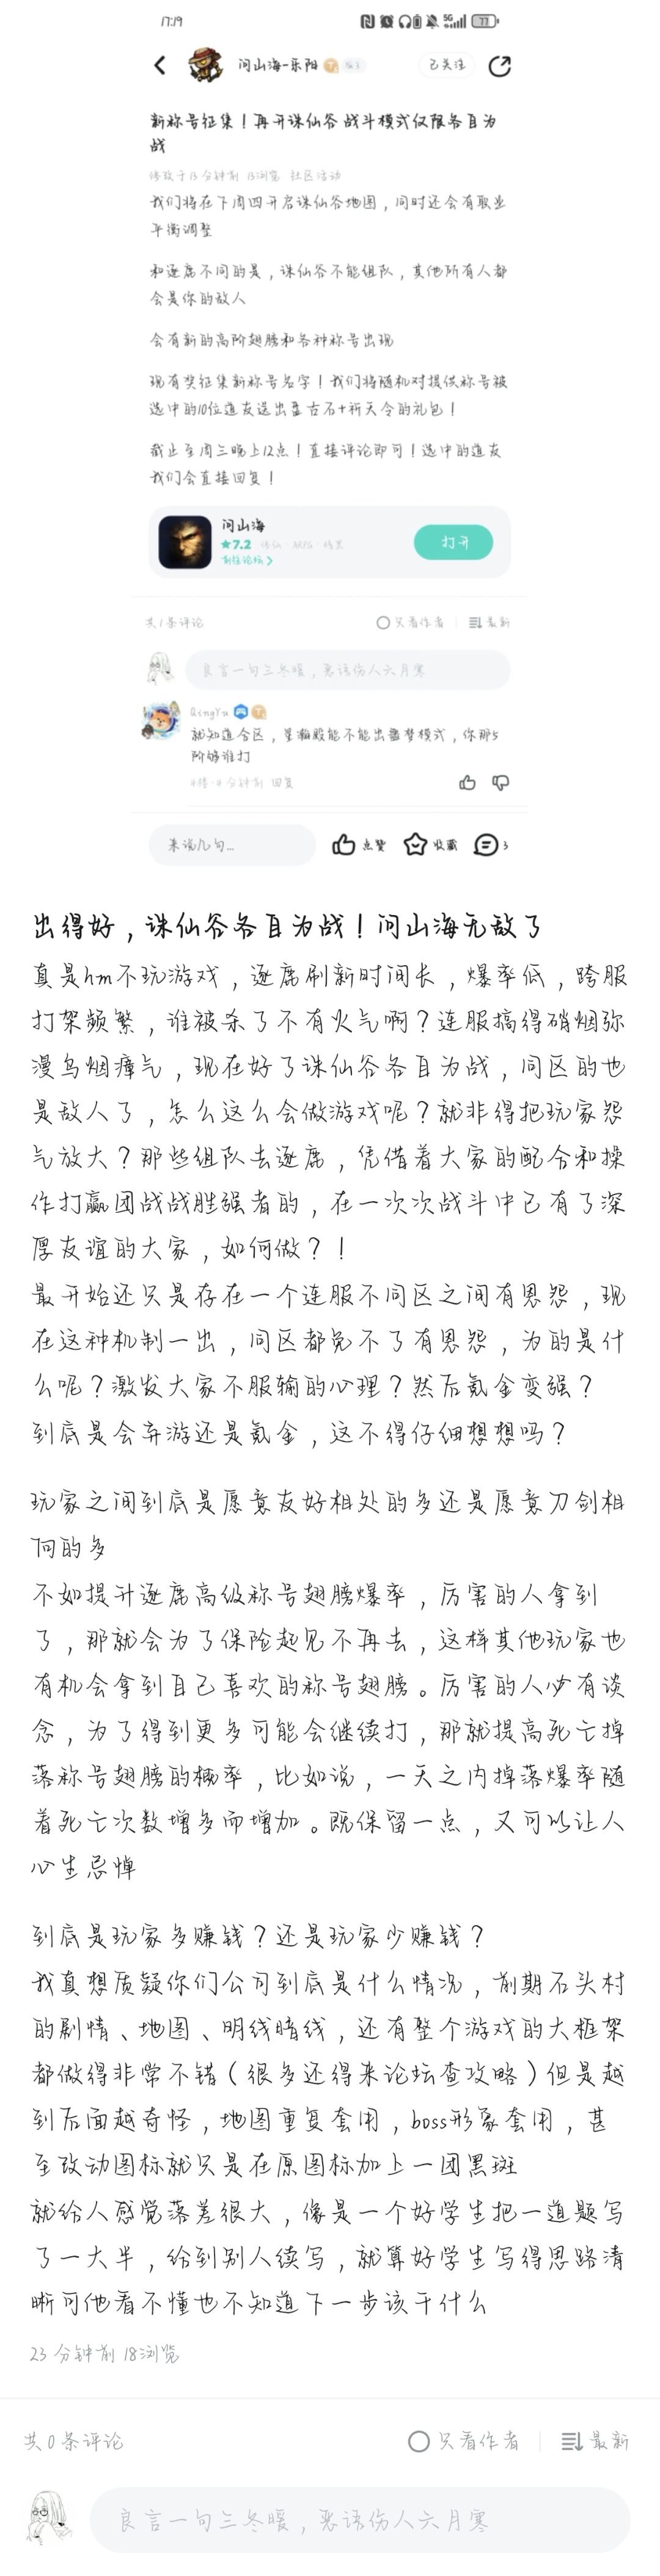 17:19
5G
77
问山海-乐阳
已关注
新称号征集！再开诛仙谷 战斗模式仅限各自为
战
修改于13 分钟前 13浏览 社区活动
我们将在下周四开启诛仙谷地图，同时还会有职业
平衡调整
和逐鹿不同的是，诛仙谷不能组队，其他所有人都
会是你的敌人
会有新的高阶翅膀和各种称号出现
现有奖征集新称号名字！我们将随机对提供称号被
选中的10位道友送出盘古石+祈天令的礼包！
截止至周三晚上12点！直接评论即可！选中的道友
我们会直接回复！
问山海
★7.2 修仙 · ARPG · 暗黑
前往论坛 >
打开
共1条评论
只看作者
最新
良言一句三冬暖，恶语伤人六月寒
QingYu
就知道合区，星瀚殿能不能出噩梦模式，你那5
阶够谁打
4楼·4 分钟前 回复
来说几句...
点赞
收藏
3
出得好，诛仙谷各自为战！问山海无敌了
真是hm不玩游戏，逐鹿刷新时间长，爆率低，跨服
打架频繁，谁被杀了不有火气啊？连服搞得硝烟弥
漫乌烟瘴气，现在好了诛仙谷各自为战，同区的也
是敌人了，怎么这么会做游戏呢？就非得把玩家怨
气放大？那些组队去逐鹿，凭借着大家的配合和操
作打赢团战战胜强者的，在一次次战斗中已有了深
厚友谊的大家，如何做？！
最开始还只是存在一个连服不同区之间有恩怨，现
在这种机制一出，同区都免不了有恩怨，为的是什
么呢？激发大家不服输的心理？然后氪金变强？
到底是会弃游还是氪金，这不得仔细想想吗？
玩家之间到底是愿意友好相处的多还是愿意刀剑相
向的多
不如提升逐鹿高级称号翅膀爆率，厉害的人拿到
了，那就会为了保险起见不再去，这样其他玩家也
有机会拿到自己喜欢的称号翅膀。厉害的人必有谈
念，为了得到更多可能会继续打，那就提高死亡掉
落称号翅膀的概率，比如说，一天之内掉落爆率随
着死亡次数增多而增加。既保留一点，又可以让人
心生忌惮
到底是玩家多赚钱？还是玩家少赚钱？
我真想质疑你们公司到底是什么情况，前期石头村
的剧情、地图、明线暗线，还有整个游戏的大框架
都做得非常不错（很多还得来论坛查攻略）但是越
到后面越奇怪，地图重复套用，boss形象套用，甚
至改动图标就只是在原图标加上一团黑斑
就给人感觉落差很大，像是一个好学生把一道题写
了一大半，给到别人续写，就算好学生写得思路清
晰可他看不懂也不知道下一步该干什么
23 分钟前 18浏览
共0条评论
只看作者
最新
良言一句三冬暖，恶语伤人六月寒